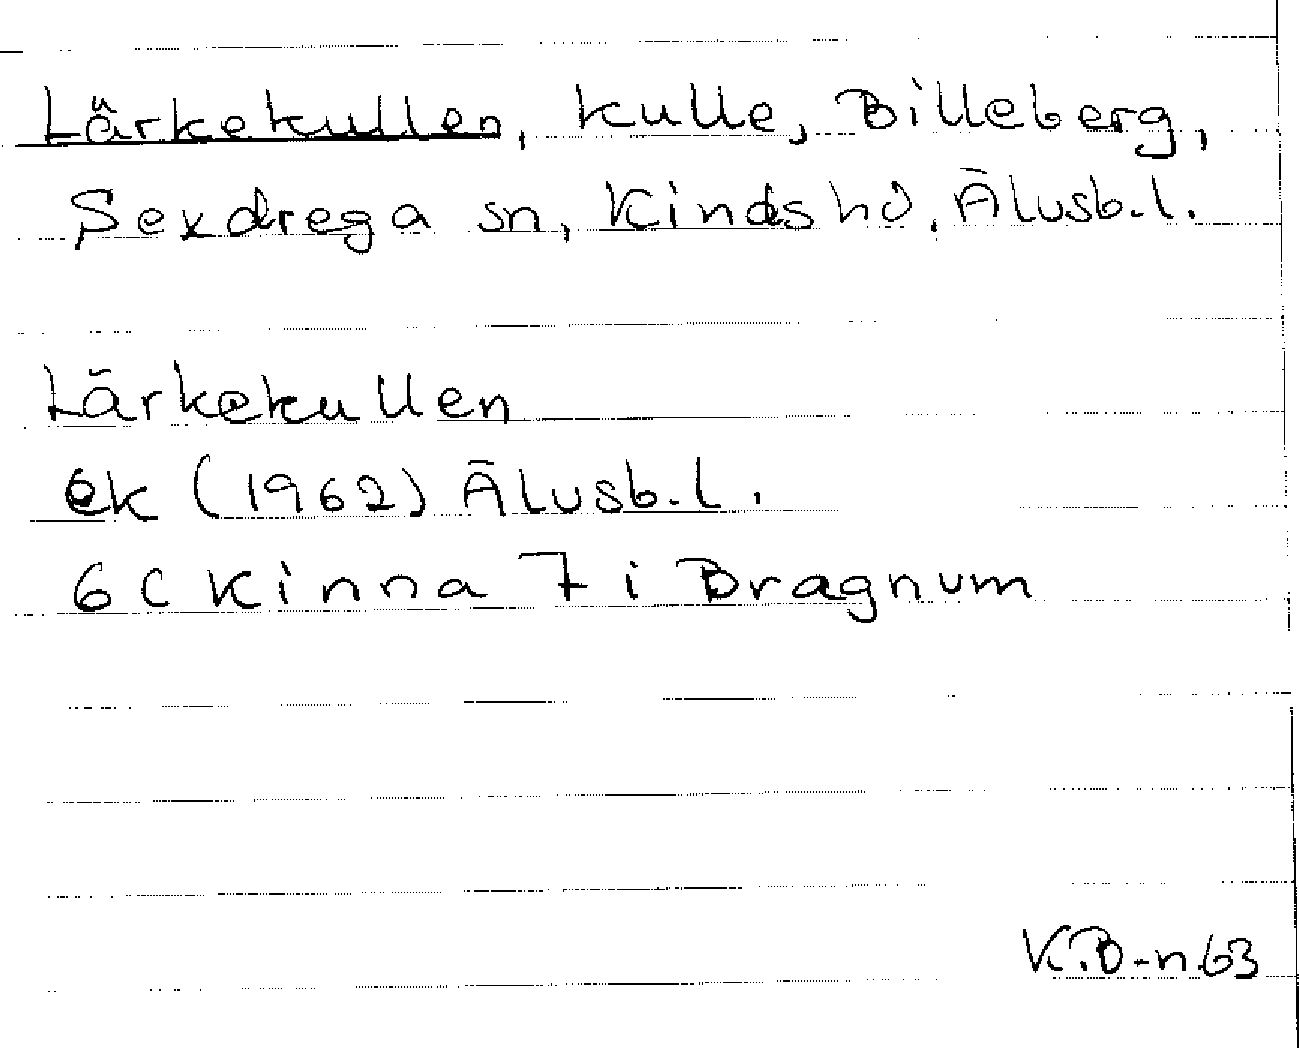 Lärkekullen, kulle, Billeberg,
Sexdrega sn, Kinds hd, Älvsb. l.
Lärkekullen
ek (1962) Älvsb. l.
6C Kinna 7i Dragnum
K.B-n.63